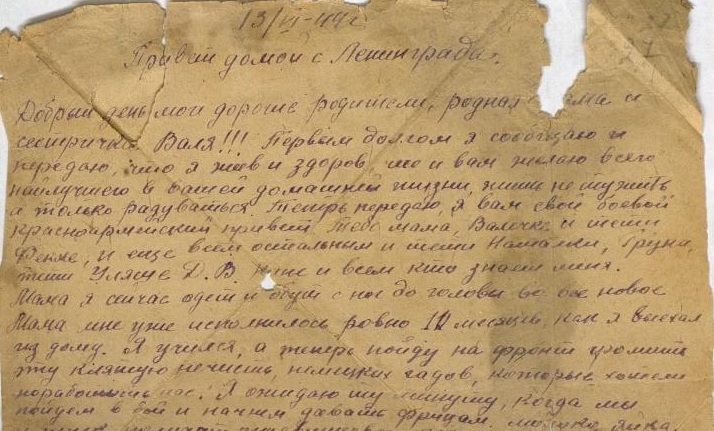 13/VI-44 г.
Привет домой с Ленинграда.
Добрый день мои дорогие родители, родная мама и
сестричка Валя!!! Первым долгом я сообщаю и
передаю, что я жив и здоров, что и вам желаю всего
наилучшего в вашей домашней жизни, жить не тужить
а только радуваться. Теперь передаю, я вам свой боевой
красноармейский привет. Тебе мама, Валичка и тети
Фекле, и еще всем остальным и тети Наталки,
тети Уляше Д. В и всем кто знает меня.
Мама я сейчас одет и обут с ног до головы во все новое
Мама мне уже исполнилось ровно 11 месяцев, как я выехал
из дому. Я учился, а теперь пойду на фронт громить
эту нечисть, немецких гадов, которые хотели
поработить нас. Я ожидаю ту минуту, когда мы
пойдем в бой и начнем давать фрицам